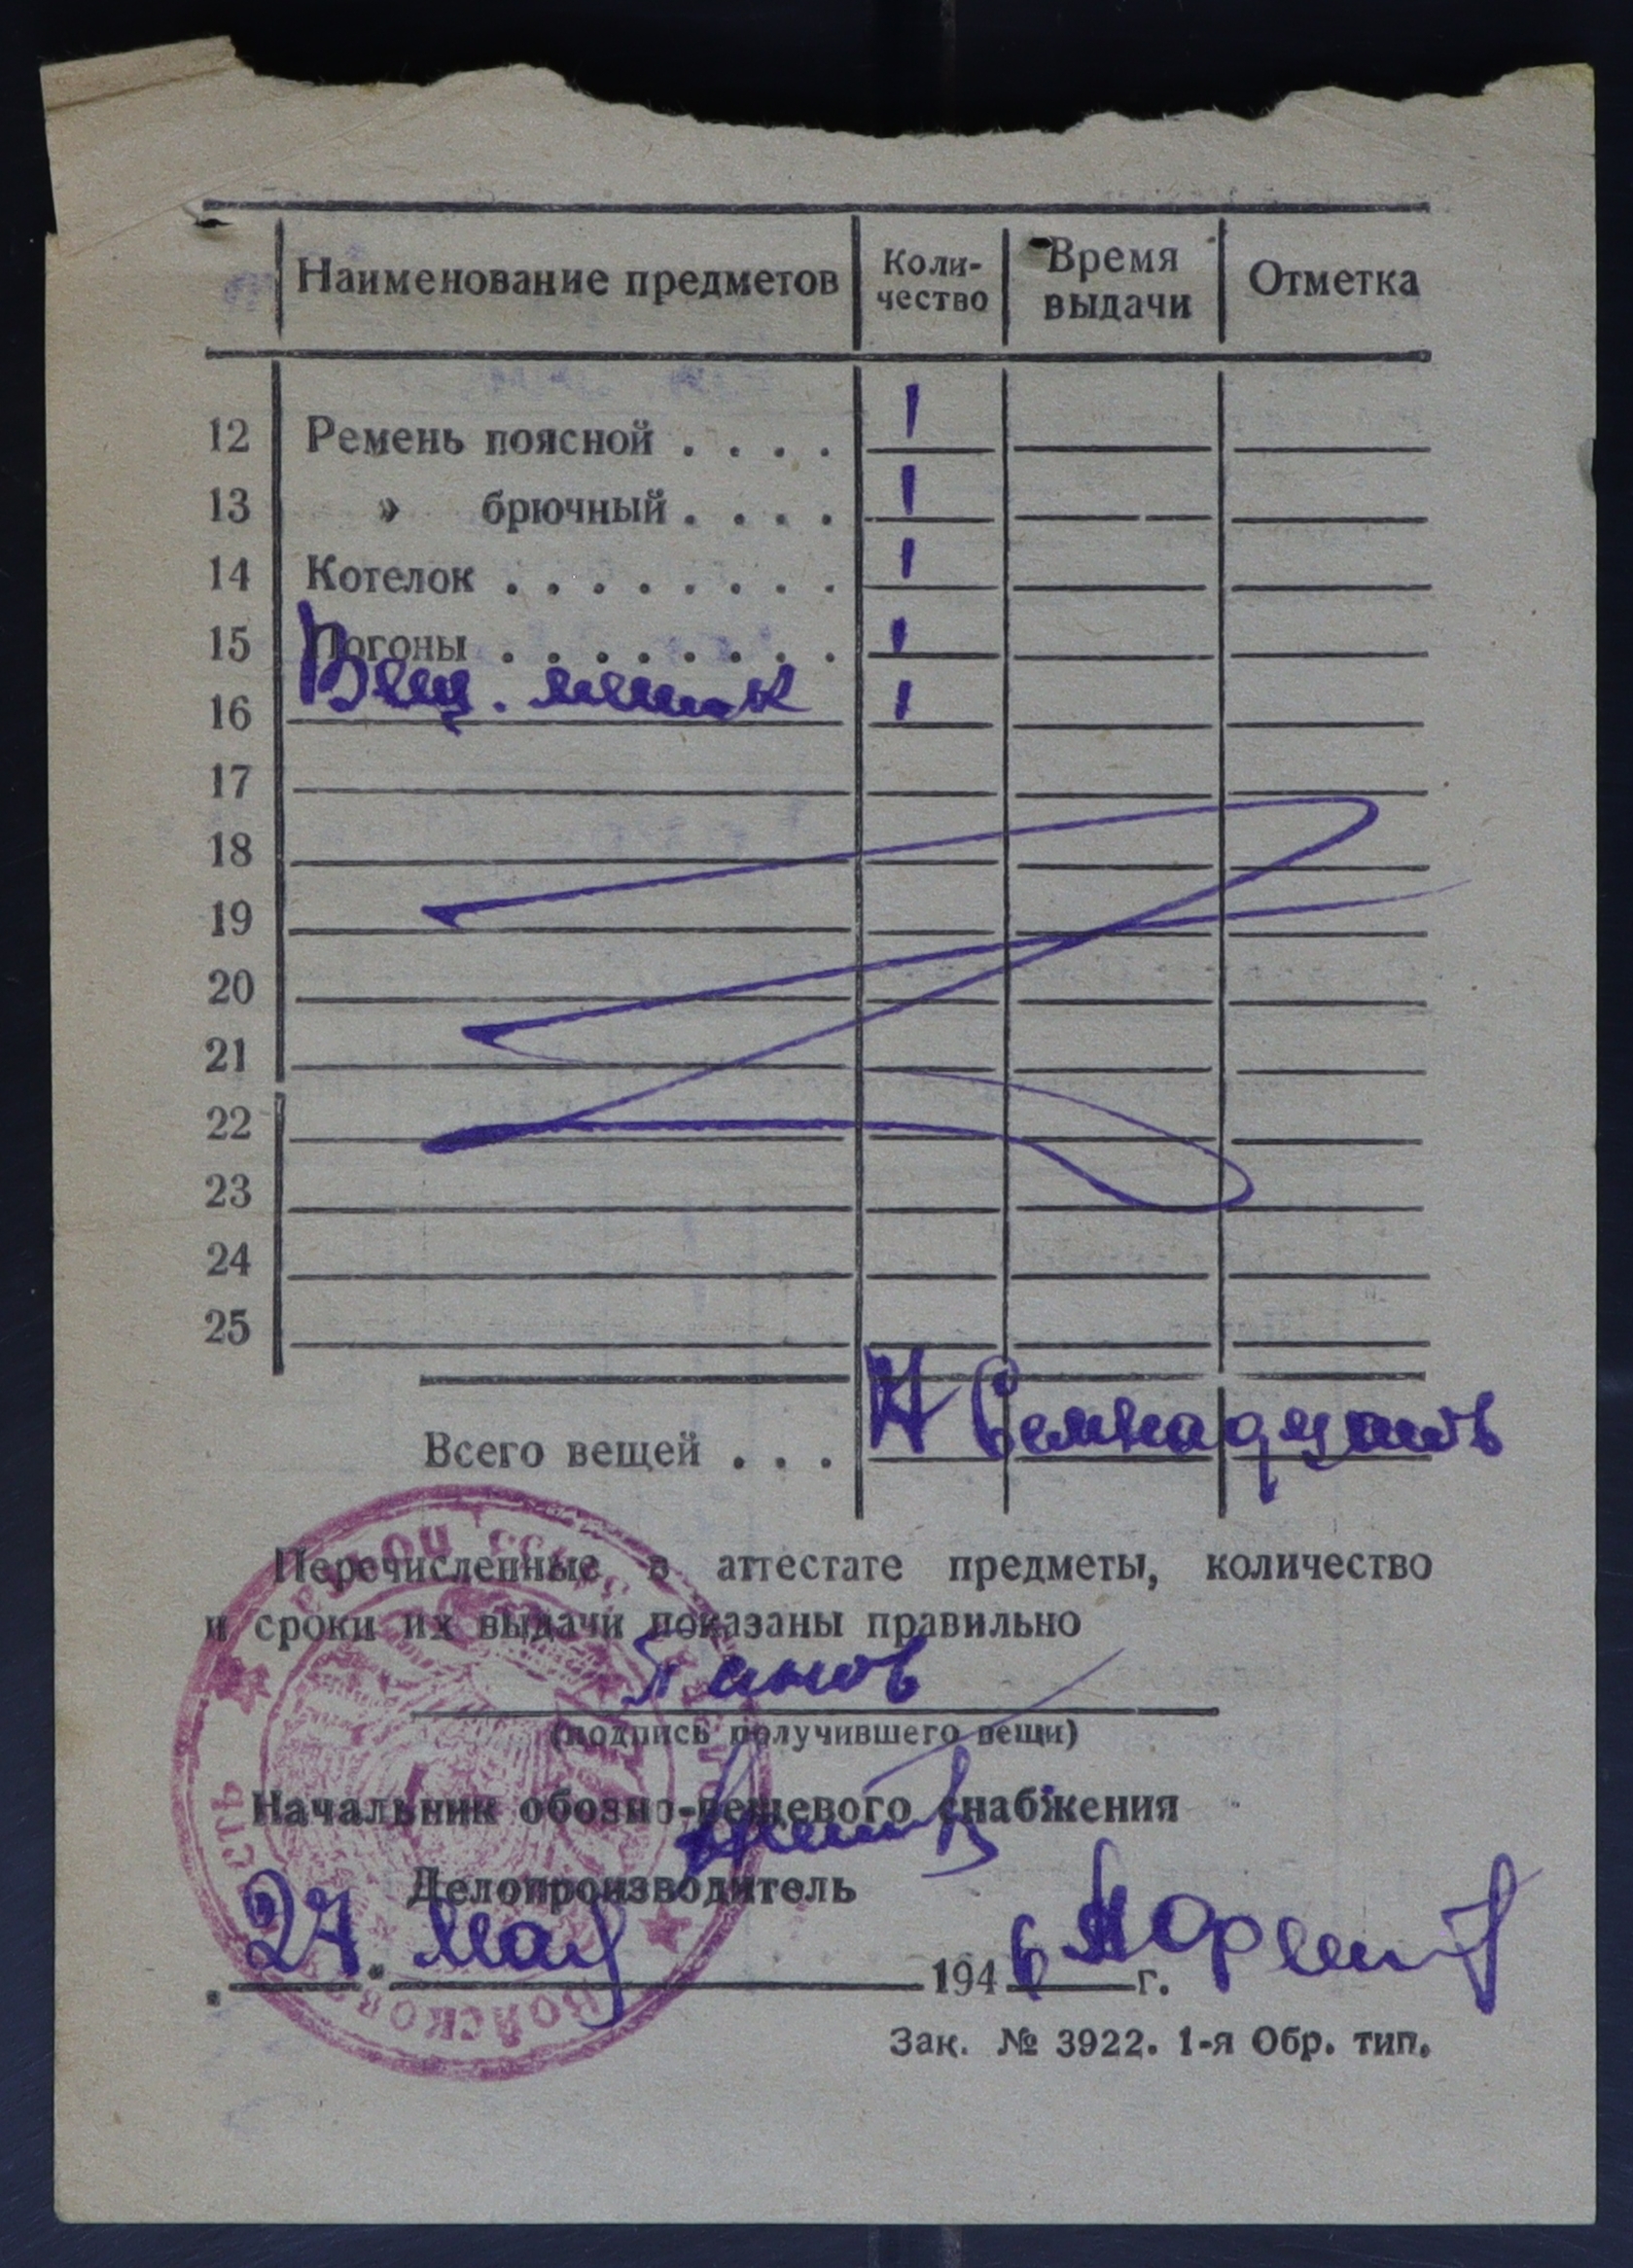 Наименование предметов Коли- Время Отметка
чество выдачи
12 Ремень поясной . . . . 1
13 » брючный . . . . 1
14 Котелок . . . . . . . . 1
15 Погоны . . . . . . . . 1
16 Вещ. мешок 1
17
18
19
20
21
22
23
24
25
Всего вещей . . . 17 Семнадцать
Перечисленные в аттестате предметы, количество
и сроки их выдачи показаны правильно
Панов
(подпись получившего вещи)
Начальник обозно-вещевого снабжения
Делопроизводитель
27. мая 1946 г.
Зак. № 3922. 1-я Обр. тип.